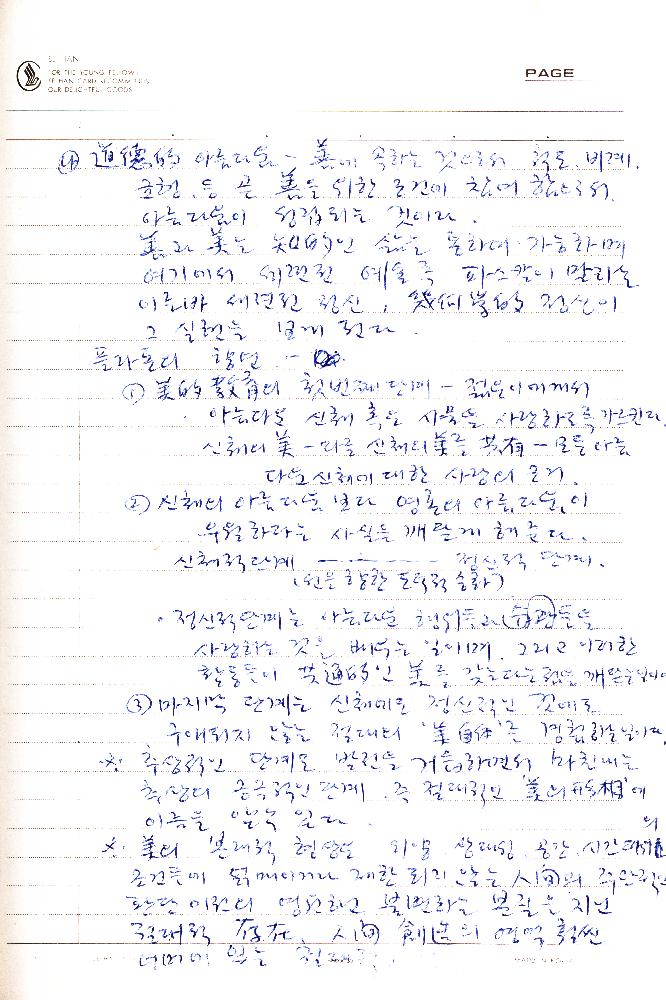 SE HAN
FOR THE YOUNG FELLOW
SE HAN CARD RECOMMENDS
OUR DELIGHTFUL GOODS
PAGE
(4) 道德的 아름다움 - 善에 속하는 것으로서 척도, 비례,
균형 등 큰 善을 위한 조건에 참여함으로서,
아름다움이 성립되는 것이다.
善과 美는 知的인 삶을 통하여 가능하며
여기에서 세련된 예술 즉 파스칼이 말하는
이른바 세련된 정신, 幾何学的 정신이
그 실현을 보게 된다.
플라톤의 향연 -
① 美的 敎育의 첫번째 단계 - 젊은이에게서
아름다운 신체 혹은 사물을 사랑하도록 가르킨다.
신체의 美 - 다른 신체의 美를 共有 - 모든 아름
다운 신체에 대한 사랑의 조건.
② 신체의 아름다움 보다 영혼의 아름다움이
우월하다는 사실을 깨닫게 해준다.
신체적단계 ―――― 정신적 단계.
(선을 향한 도덕적 승화)
• 정신적단계는 아름다운 행위들과 들을
사랑하는 것을 배우는 일이며, 그리고 이러한
활동들이 共通的인 美를 갖는다는 것을 깨닫는일이다
③ 마지막 단계는 신체에도 정신적인 것에도
구애되지 않는 절대의 '美自体'를 경험하는일이다.
※ 추상적인 단계로 발전을 거듭하면서 마침내는
추상의 궁극적인 단계, 즉 절대적인 '美의 形相'에
이름을 알수 있다.
※ 美의 본래적 현상은 외양, 상대성, 공간, 시간의
조건들에 얽매이거나 제한되지 않는 人间의 주관적인
판단 이전의 영원하고 불변하는 본질을 지닌
절대적 存在, 人间 創造의 영역 훨씬
너머에 있는